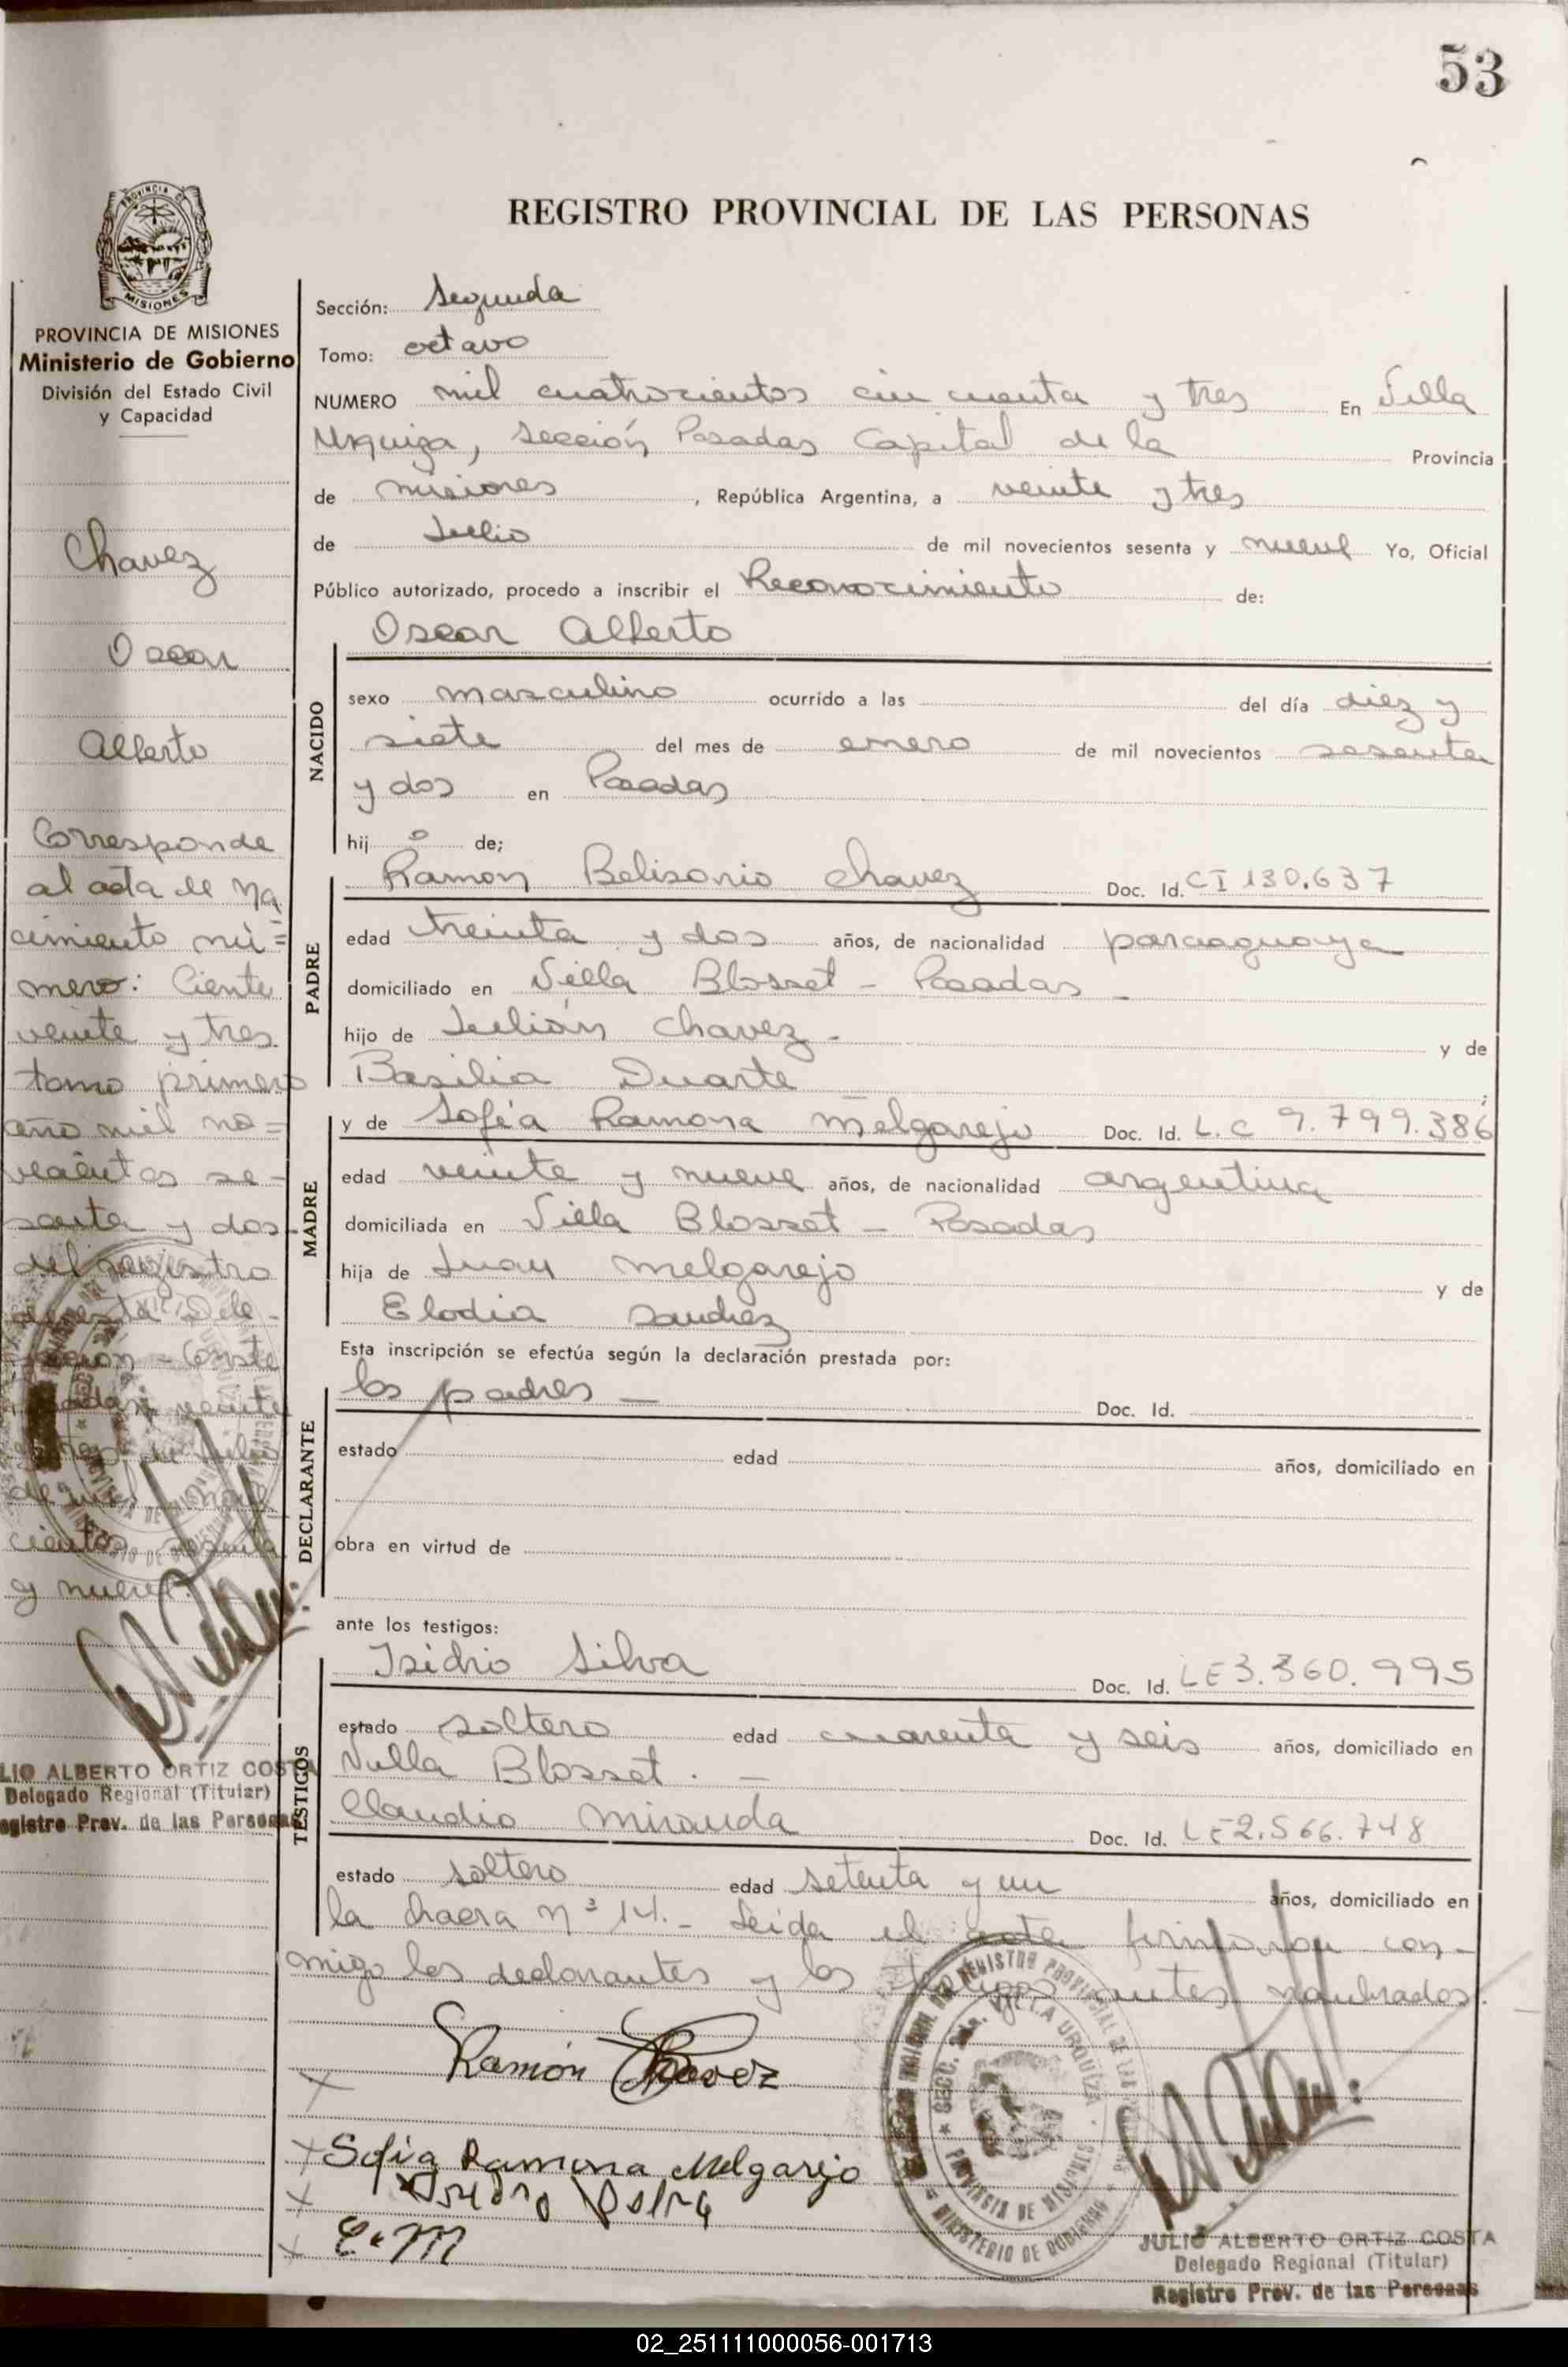 53
REGISTRO PROVINCIAL DE LAS PERSONAS
PROVINCIA DE MISIONES
Ministerio de Gobierno
División del Estado Civil
y Capacidad
Chavez
Oscar
Alberto
Corresponde
al acta de na
cimiento nú=
mero: Ciento
veinte y tres
tomo primero
año mil no=
vecientos se-
senta y dos
del registro
Conste
veinte
Julio
de mil
cientos sesenta
y nueve
LIO ALBERTO ORTIZ COSTA
Delegado Regional (Titular)
egistro Prov. de las Personas
Sección: Segunda
Tomo: octavo
NUMERO mil cuatrocientos cin cuenta y tres En Villa
Urquiza, sección Posadas Capital de la Provincia
de misiones, República Argentina, a veinte y tres
de Julio de mil novecientos sesenta y nueve Yo, Oficial
Público autorizado, procedo a inscribir el Reconocimiento de:
Oscar Alberto
NACIDO
sexo masculino ocurrido a las del día diez y
siete del mes de enero de mil novecientos sesenta
y dos en Posadas
hij o de;
PADRE
Ramon Belisario Chavez Doc. Id. CI 130.637
edad treinta y dos años, de nacionalidad paraaguaya
domiciliado en Villa Blosset - Posadas -
hijo de Julián Chavez - y de
Basilia Duarte ;
MADRE
y de Sofia Ramona Melgarejo Doc. Id. L.C 9.799.386
edad veinte y nueve años, de nacionalidad argentina
domiciliada en Villa Blosset - Posadas
hija de Juan Melgarejo y de
Elodia Sanchez
Esta inscripción se efectúa según la declaración prestada por:
DECLARANTE
los padres - Doc. Id.
estado edad años, domiciliado en
obra en virtud de
ante los testigos:
TESTIGOS
Isidrio Silva Doc. Id. LE 3.360.995
estado soltero edad cuarenta y seis años, domiciliado en
Villa Blosset. -
Claudio Miranda Doc. Id. LE 2.566.748
estado soltero edad setenta y un años, domiciliado en
la chacra nº 14. - Leida el acta firmaron con-
migo los declarantes y los testigos antes nombrados.
Ramón Chavez
Sofia Ramona Melgarejo
C. M
SECC. 2da. VILLA URQUIZA
PROVINCIA DE MISIONES
MINISTERIO DE GOBIERNO
JULIO ALBERTO ORTIZ COSTA
Delegado Regional (Titular)
Registro Prov. de las Personas
02_251111000056-001713